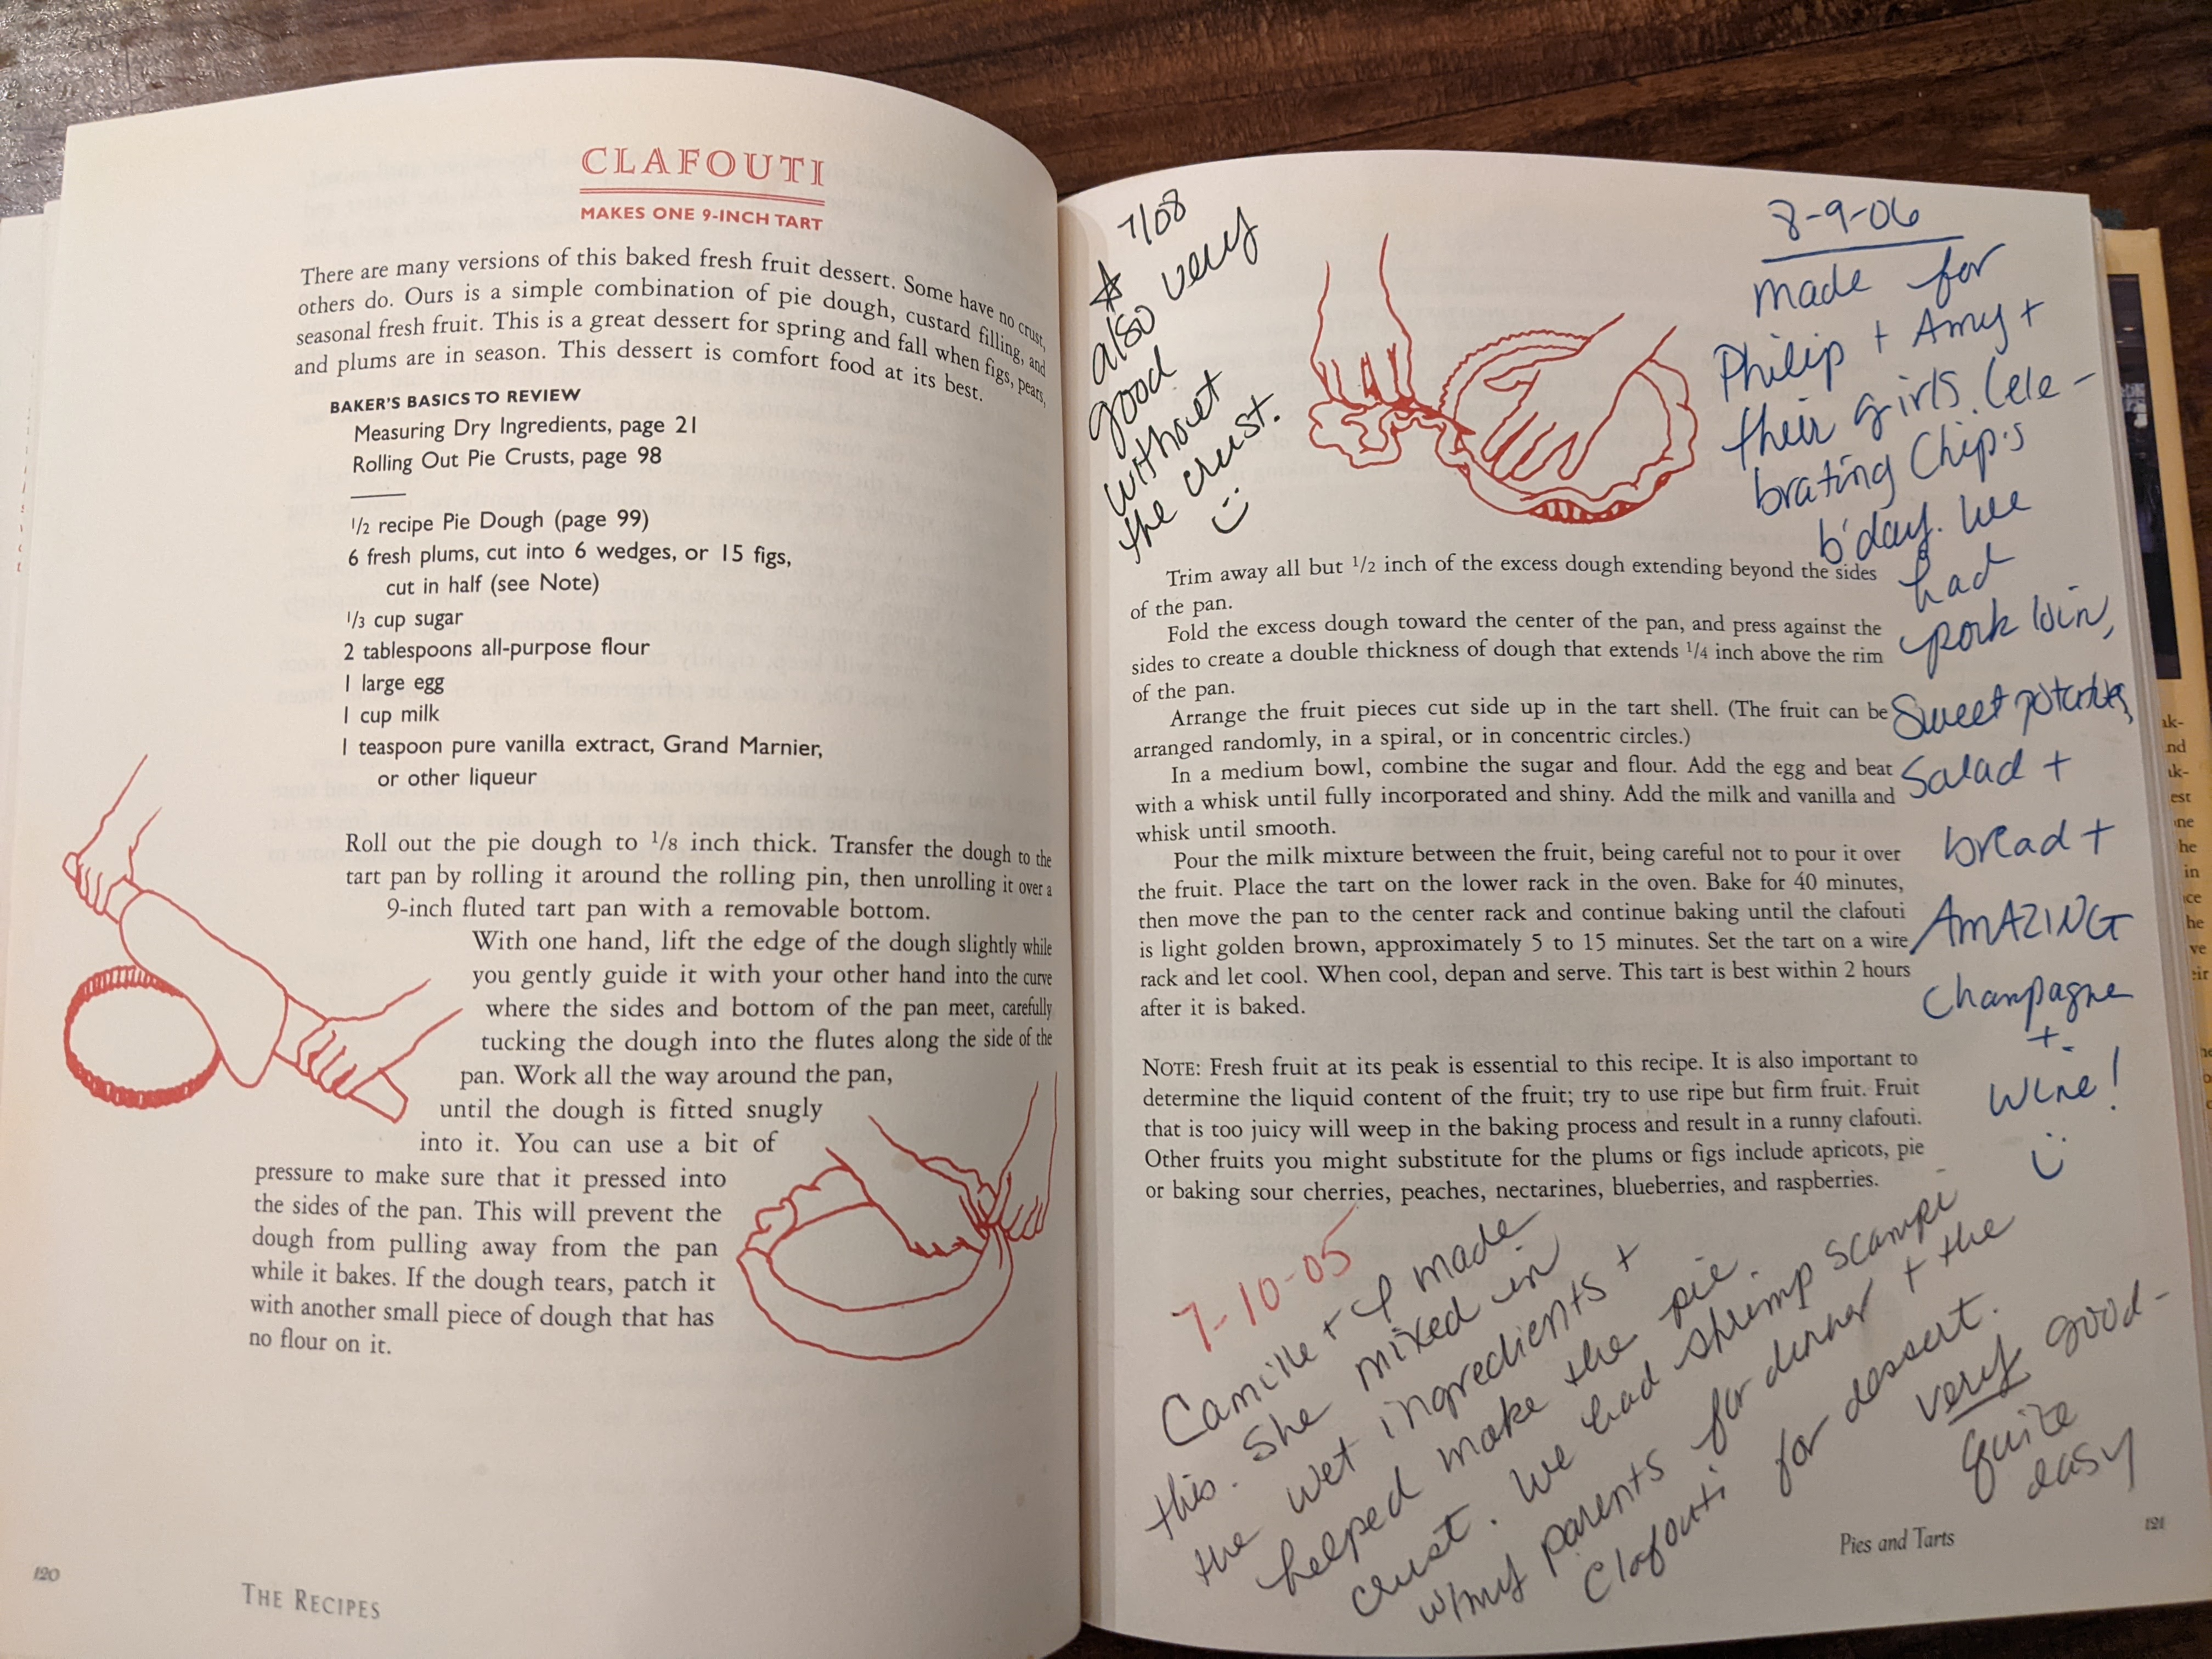 CLAFOUTI
MAKES ONE 9-INCH TART
There are many versions of this baked fresh fruit dessert. Some have no crust,
others do. Ours is a simple combination of pie dough, custard filling, and
seasonal fresh fruit. This is a great dessert for spring and fall when figs, pears,
and plums are in season. This dessert is comfort food at its best.
BAKER'S BASICS TO REVIEW
Measuring Dry Ingredients, page 21
Rolling Out Pie Crusts, page 98
1/2 recipe Pie Dough (page 99)
6 fresh plums, cut into 6 wedges, or 15 figs,
cut in half (see Note)
1/3 cup sugar
2 tablespoons all-purpose flour
1 large egg
1 cup milk
1 teaspoon pure vanilla extract, Grand Marnier,
or other liqueur
Roll out the pie dough to 1/8 inch thick. Transfer the dough to the
tart pan by rolling it around the rolling pin, then unrolling it over a
9-inch fluted tart pan with a removable bottom.
With one hand, lift the edge of the dough slightly while
you gently guide it with your other hand into the curve
where the sides and bottom of the pan meet, carefully
tucking the dough into the flutes along the side of the
pan. Work all the way around the pan,
until the dough is fitted snugly
into it. You can use a bit of
pressure to make sure that it pressed into
the sides of the pan. This will prevent the
dough from pulling away from the pan
while it bakes. If the dough tears, patch it
with another small piece of dough that has
no flour on it.
120
THE RECIPES
7/08
☆
also very
good
without
the crust.
:)
8-9-06
made for
Philip + Amy +
their girls. Cele-
brating Chip's
b'day. We
had
pork loin,
Sweet potatoes,
Salad +
bread +
AMAZING
Champagne
+
Wine!
:)
Trim away all but 1/2 inch of the excess dough extending beyond the sides
of the pan.
Fold the excess dough toward the center of the pan, and press against the
sides to create a double thickness of dough that extends 1/4 inch above the rim
of the pan.
Arrange the fruit pieces cut side up in the tart shell. (The fruit can be
arranged randomly, in a spiral, or in concentric circles.)
In a medium bowl, combine the sugar and flour. Add the egg and beat
with a whisk until fully incorporated and shiny. Add the milk and vanilla and
whisk until smooth.
Pour the milk mixture between the fruit, being careful not to pour it over
the fruit. Place the tart on the lower rack in the oven. Bake for 40 minutes,
then move the pan to the center rack and continue baking until the clafouti
is light golden brown, approximately 5 to 15 minutes. Set the tart on a wire
rack and let cool. When cool, depan and serve. This tart is best within 2 hours
after it is baked.
NOTE: Fresh fruit at its peak is essential to this recipe. It is also important to
determine the liquid content of the fruit; try to use ripe but firm fruit. Fruit
that is too juicy will weep in the baking process and result in a runny clafouti.
Other fruits you might substitute for the plums or figs include apricots, pie
or baking sour cherries, peaches, nectarines, blueberries, and raspberries.
7-10-05
Camille + I made
this. She mixed in
the wet ingredients +
helped make the pie
crust. We had shrimp scampi
w/my parents for dinner + the
Clafouti for dessert.
very good-
quite
easy
Pies and Tarts
121